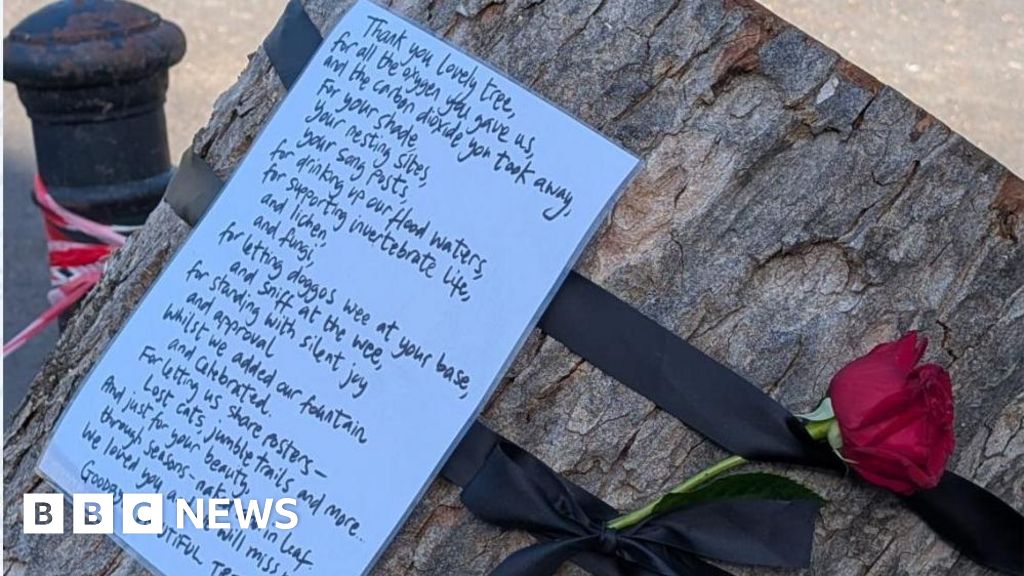 Thank you lovely tree,
for all the oxygen you gave us,
and the carbon dioxide you took away,
For your shade
your nesting sites,
your song posts,
for drinking up our flood waters,
for supporting invertebrate life,
and lichen,
and fungi,
for letting doggos wee at your base,
and sniff at the wee,
for standing with silent joy
and approval
whilst we added our fountain
and celebrated.
For letting us share posters –
Lost cats, jumble trails, and more..
And just for your beauty,
through seasons – naked and in leaf.
We loved you and we will miss
BBC NEWS